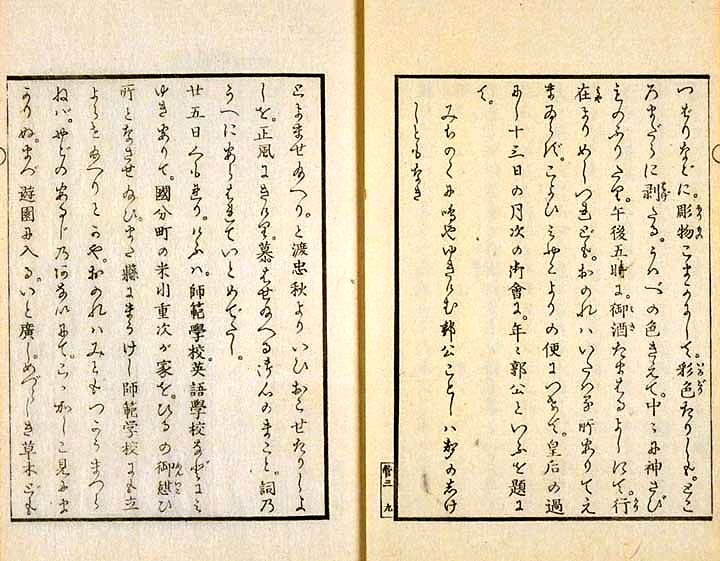 つばりなどに。彫物こまかにして。彩色たりしも。とこ
ろまだらに剥たる。うはべの色きえて。中々に神さび
ものふりたり。午後五時に。御酒たまはるよしにて。行
在よりめしつれども。おのれハいたつき所ありてえ
まゐらず。こよひみやこよりの便につきて。皇后の過
にし十三日の月次の御會に。年々郭公といふを題に
て。
みちのくに鳴やゆきけむ郭公ことしハ声のしげ
しともなき
督三 九
とよませ給へり。と渡忠秋よりいひおこせたりしよ
しを。正風にきけり。慕はせ給へる御心のまこと。詞乃
うへにあらはれていとめでたし。
廿五日くもれり。けふハ。師範學校。英語學校などにみ
ゆきありて。國分町の米川重次が家を。ひるの御憩ひ
所となさせ給ひ。また縣にまうけし師範学校にも立
よらせ給へりとかや。おのれハみともつかうまつら
ねば。やどのあるじ乃あないにて。こゝかしこ見にま
かりぬ。まづ遊園に入る。いと廣し。めづらしき草木ども